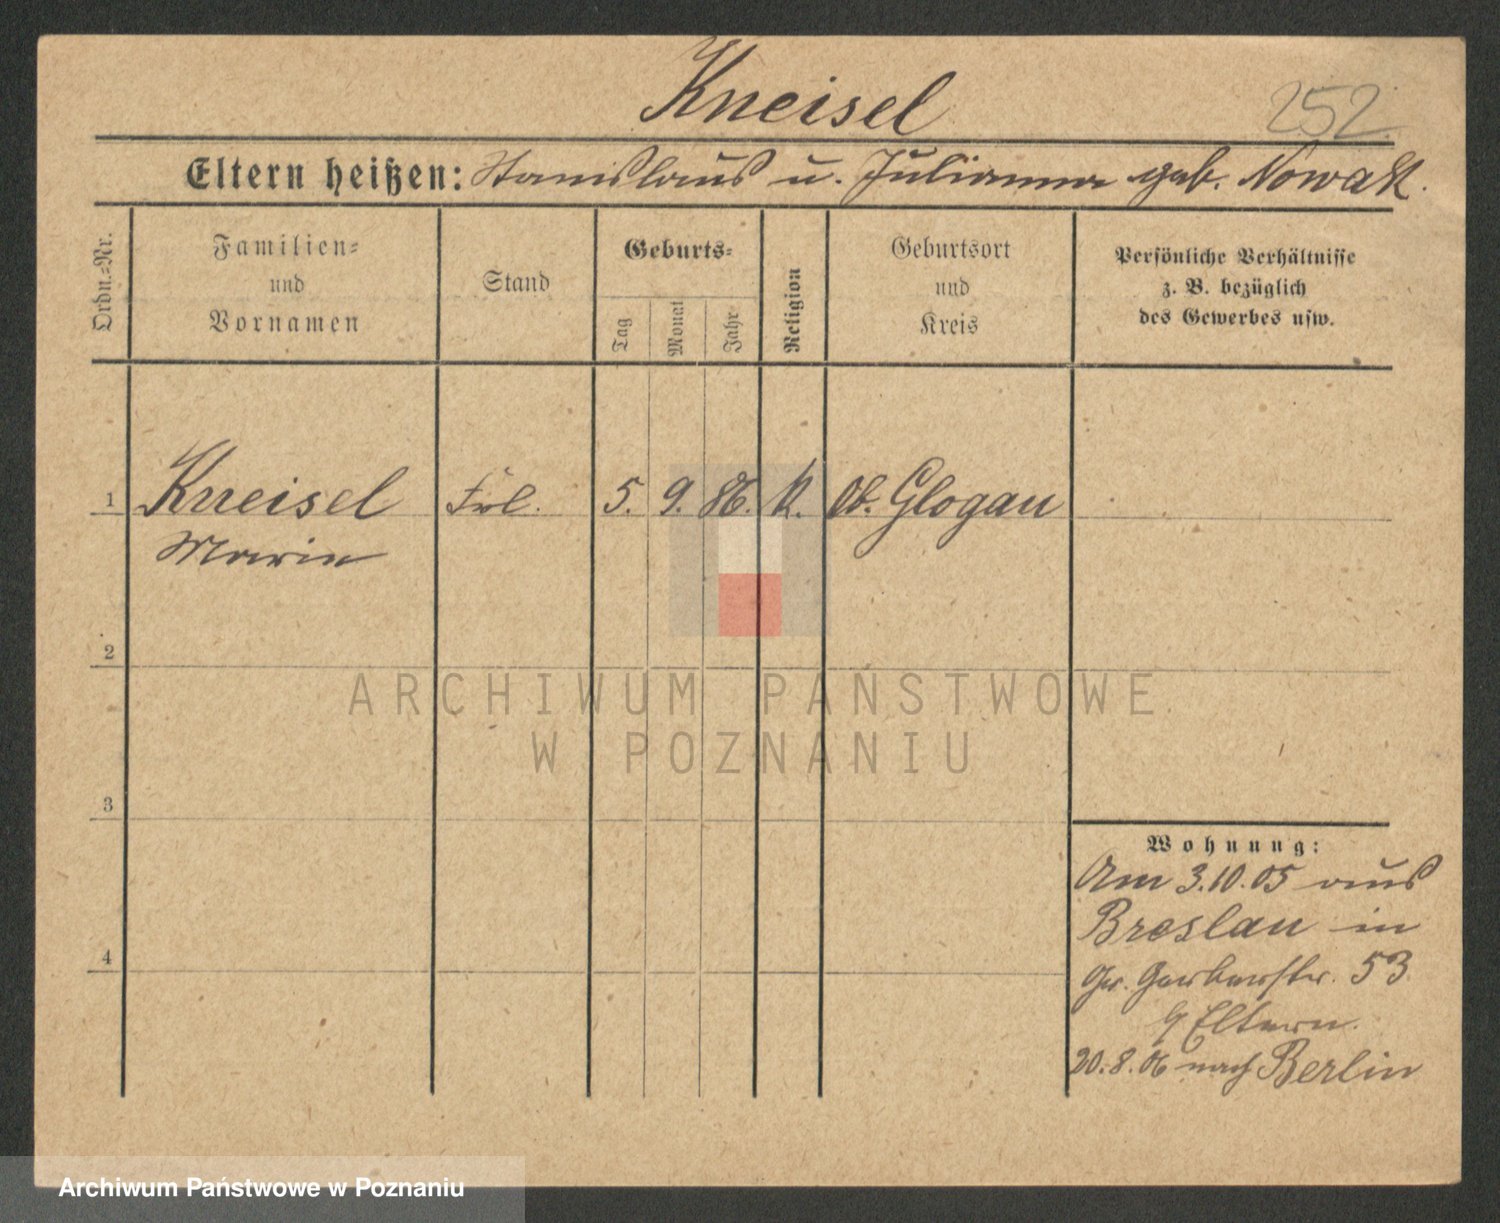 Kneisel
252.
Eltern heißen: Stanislaus u. Julianna geb. Nowak.
Ordn.=Nr.
Familien=
und
Vornamen
Stand
Geburts=
Tag
Monat
Jahr
Religion
Geburtsort
und
Kreis
Persönliche Verhältnisse
z. B. bezüglich
des Gewerbes usw.
1 Kneisel Frl. 5. 9. 86. K. Ob. Glogau
Marie
2
3
4
Wohnung:
Am 3.10.05 aus
Breslau in
Gr. Gerberstr. 53
Eltern.
20.8.06 nach Berlin
ARCHIWUM PAŃSTWOWE
W POZNANIU
Archiwum Państwowe w Poznaniu